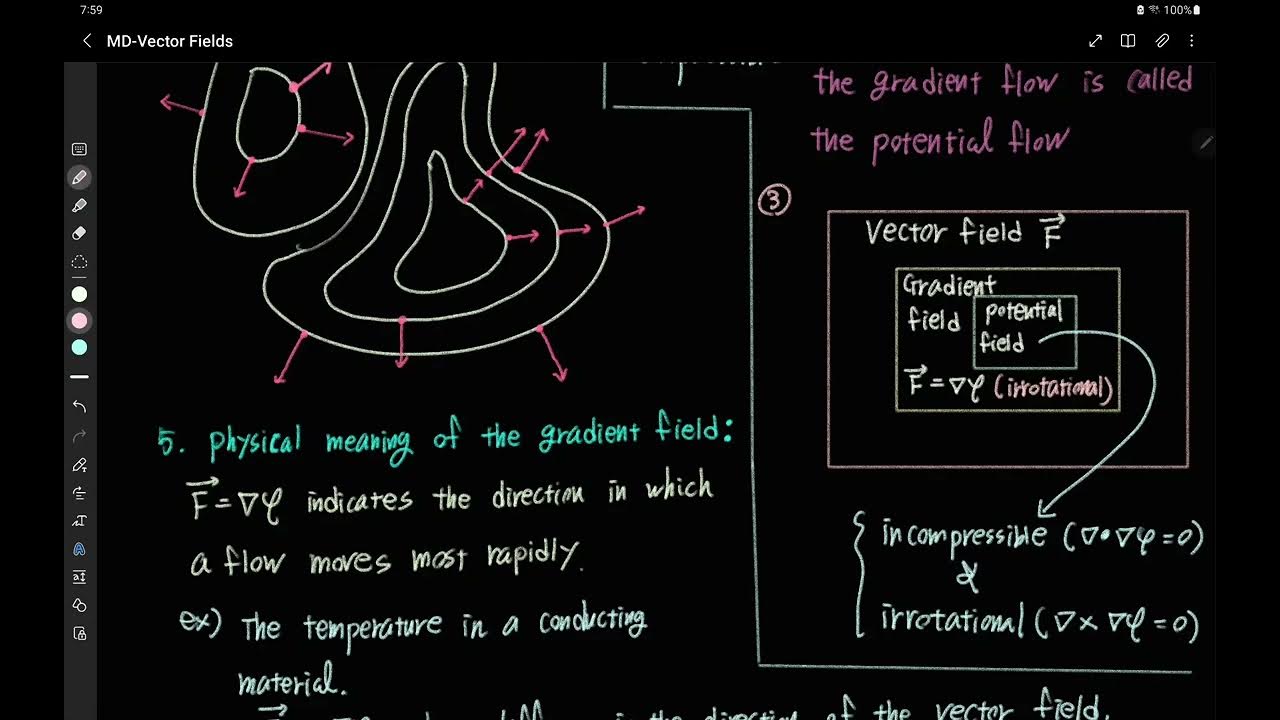 7:59
100%
MD-Vector Fields
the gradient flow is called
the potential flow
③
Vector field F⃗
Gradient
field
potential
field
F⃗ = ∇φ (irrotational)
incompressible (∇•∇φ=0)
&
irrotational (∇×∇φ=0)
5. physical meaning of the gradient field:
F⃗ = ∇φ indicates the direction in which
a flow moves most rapidly.
ex) The temperature in a conducting
material.
in the direction of the vector field.